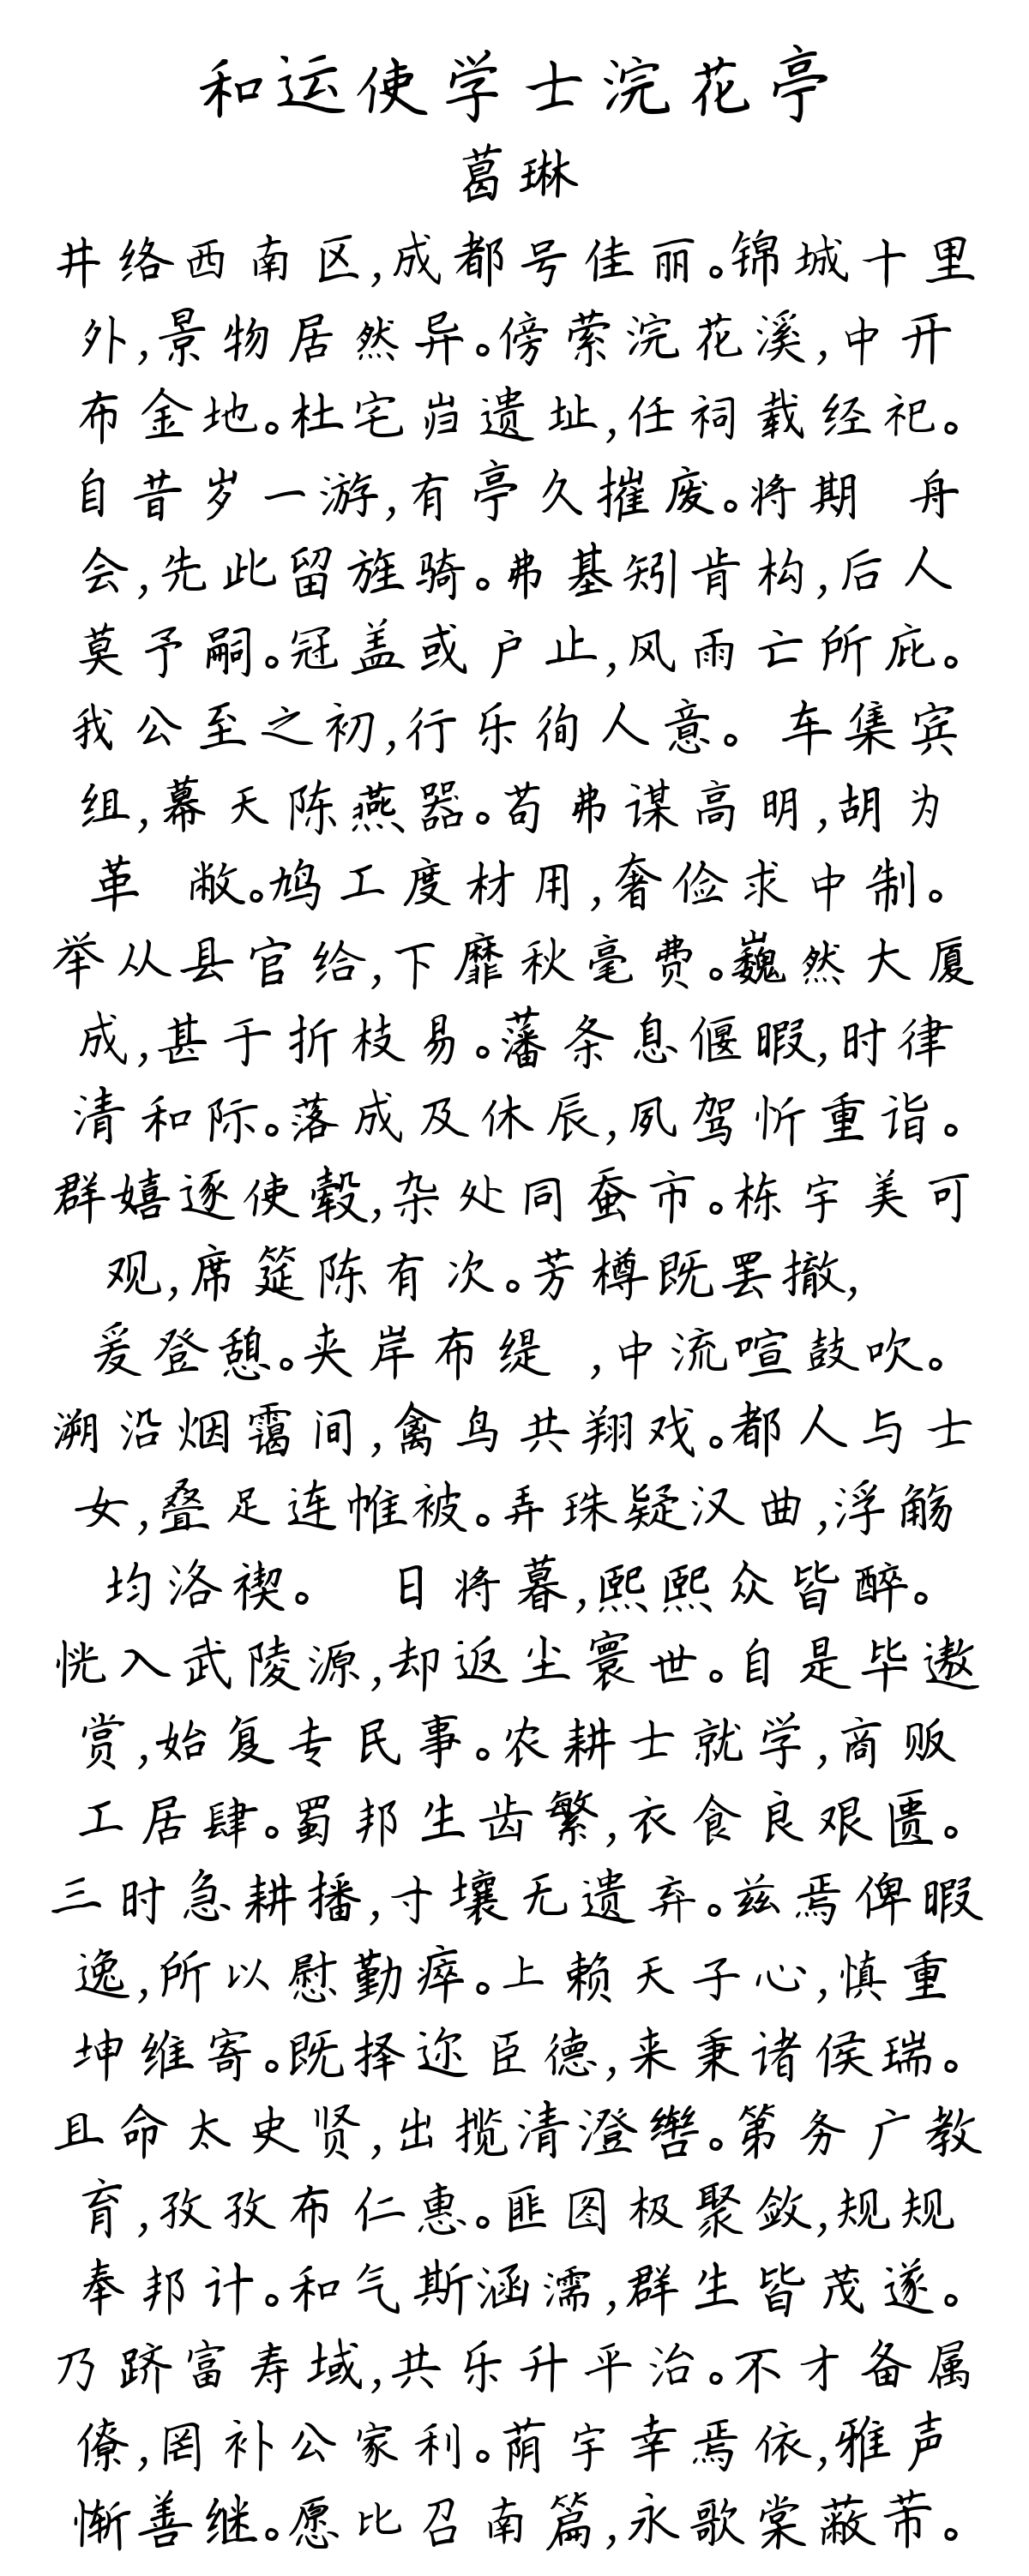 和运使学士浣花亭
葛琳
井络西南区,成都号佳丽。锦城十里
外,景物居然异。傍萦浣花溪,中开
布金地。杜宅岿遗址,任祠载经祀。
自昔岁一游,有亭久摧废。将期 舟
会,先此留旌骑。弗基矧肯构,后人
莫予嗣。冠盖或户止,风雨亡所庇。
我公至之初,行乐徇人意。 车集宾
组,幕天陈燕器。苟弗谋高明,胡为
革 敝。鸠工度材用,奢俭求中制。
举从县官给,下靡秋毫费。巍然大厦
成,甚于折枝易。藩条息偃暇,时律
清和际。落成及休辰,夙驾忻重诣。
群嬉逐使毂,杂处同蚕市。栋宇美可
观,席筵陈有次。芳樽既罢撤,
爰登憩。夹岸布缇 ,中流喧鼓吹。
溯沿烟霭间,禽鸟共翔戏。都人与士
女,叠足连帷被。弄珠疑汉曲,浮觞
均洛禊。 日将暮,熙熙众皆醉。
恍入武陵源,却返尘寰世。自是毕遨
赏,始复专民事。农耕士就学,商贩
工居肆。蜀邦生齿繁,衣食良艰匮。
三时急耕播,寸壤无遗弃。兹焉俾暇
逸,所以慰勤瘁。上赖天子心,慎重
坤维寄。既择迩臣德,来秉诸侯瑞。
且命太史贤,出揽清澄辔。第务广教
育,孜孜布仁惠。匪图极聚敛,规规
奉邦计。和气斯涵濡,群生皆茂遂。
乃跻富寿域,共乐升平治。不才备属
僚,罔补公家利。荫宇幸焉依,雅声
惭善继。愿比召南篇,永歌棠蔽芾。